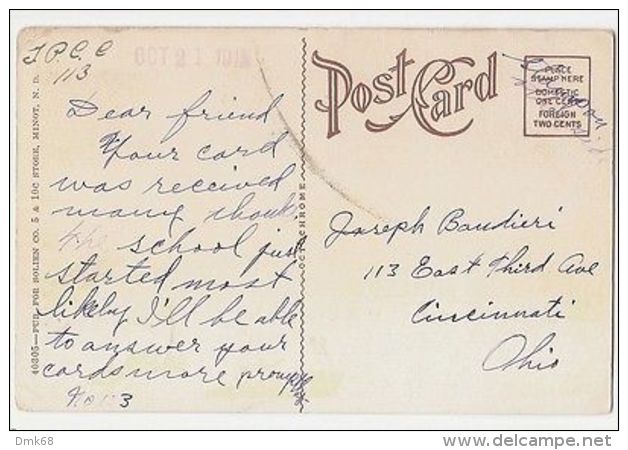 I.P.C.C
113
OCT 21
Dear friend
Your card
was received
many thanks
The school just
started most
likely I'll be able
to answer your
cards more promptly
No 113
40305—PUB. FOR SOLIEN CO. 5 & 10C STORE, MINOT, N. D.
OCTOCHROME
Post Card
PLACE
STAMP HERE
DOMESTIC
ONE CENT
FOREIGN
TWO CENTS
Joseph Baudieri
113 East Third Ave
Cincinnati
Ohio
Dmk68
www.delcampe.net